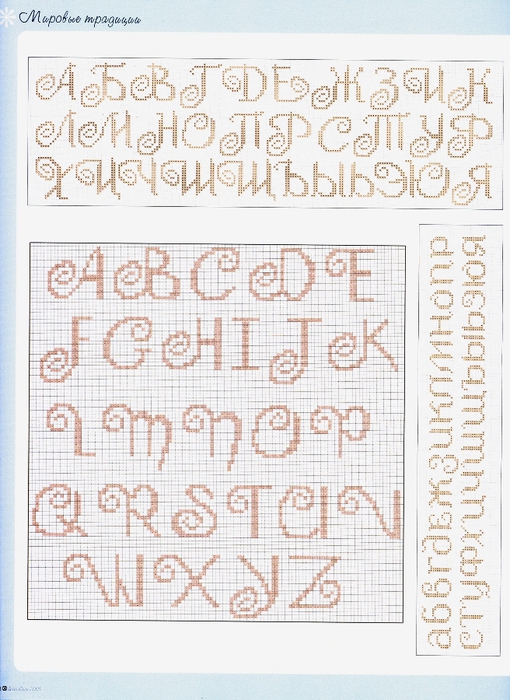 Мировые традиции
А Б В Г Д Е Ж З И К
Л М Н О П Р С Т У Ф
Х Ц Ч Ш Щ Ъ Ы Ь Э Ю Я
A B C D E
F G H I J K
L M N O P
Q R S T U V
W X Y Z
а б в г д е ж з и к л м н о п р
с т у ф х ц ч ш щ ъ ы ь э ю я